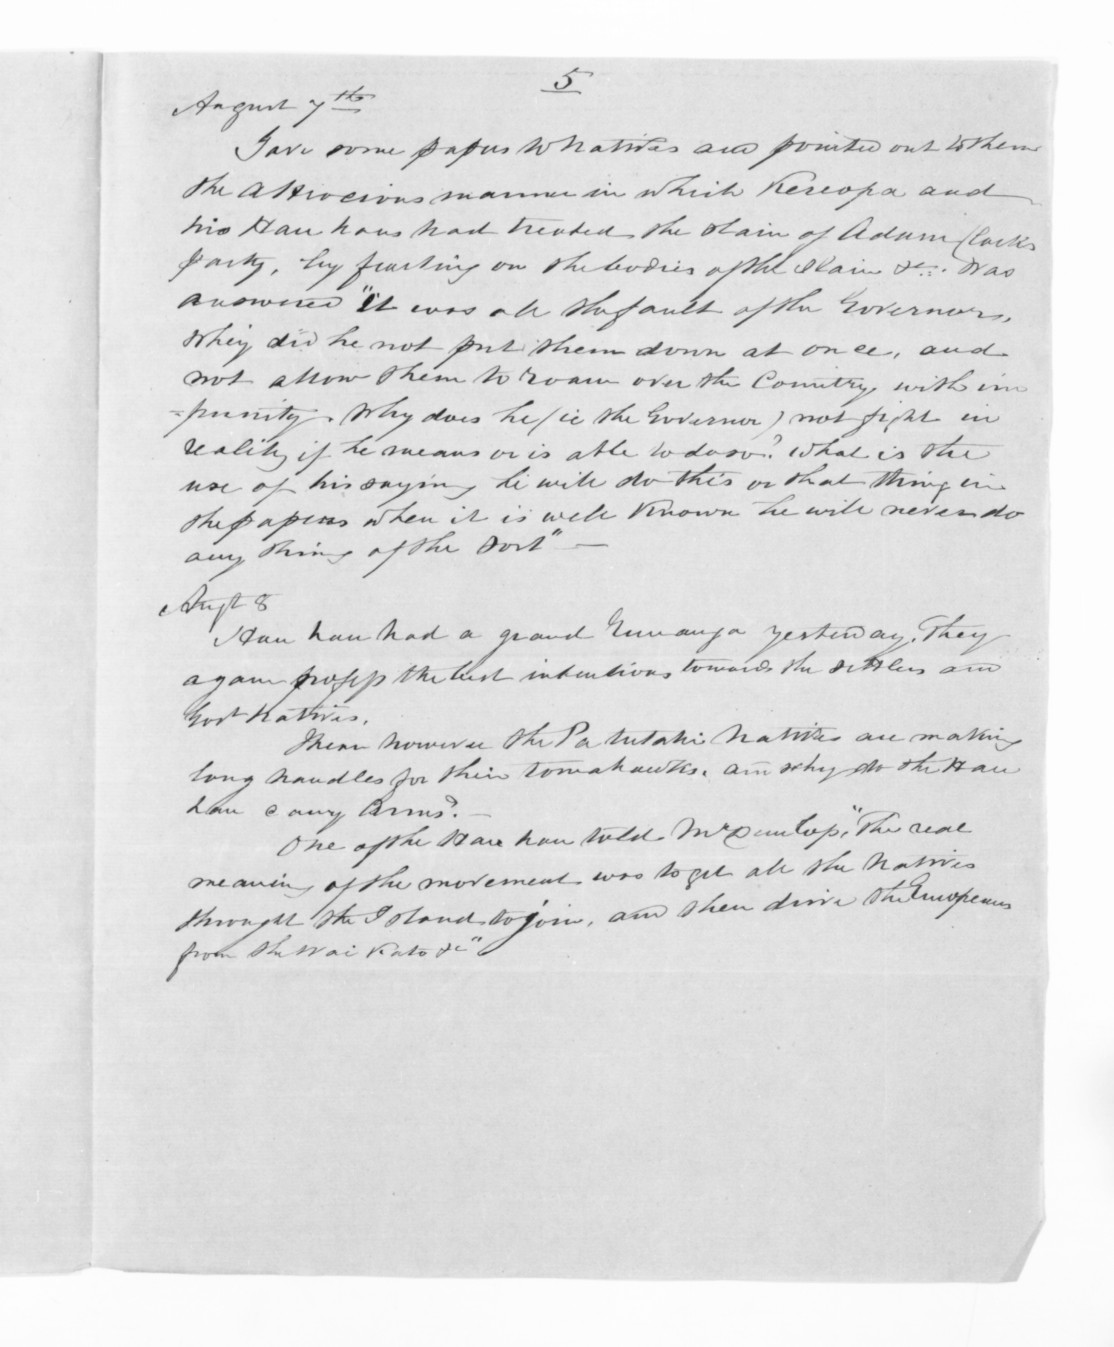 5
August 7th
Gave some papers to Natives and pointed out to them
the atrocious manner in which Kereopa and
his Hau haus had treated the slain of Adam Clark's
party, by feasting on the bodies of the slain &c. Was
answered "it was all the fault of the Governors,
Why did he not put them down at once, and
not allow them to roam over the Country with im
-punity. Why does he (ie the Governor) not fight in
reality if he means or is able to do so? What is the
use of his saying he will do this or that thing in
the papers when it is well known he will never do
any thing of the sort" —
Augt 8
Hau hau had a grand Runanga yesterday. They
again profess the best intentions towards the settlers and
Govt Natives.
however the Patutahi Natives are making
long handles for their tomahawks. and why do the Hau
hau carry Arms? —
One of the Hau hau told Mr Dunlop, "The real
meaning of the movement was to get all the Natives
throught the Island to join, and then drive the Europeans
from the Wai Kato &c"